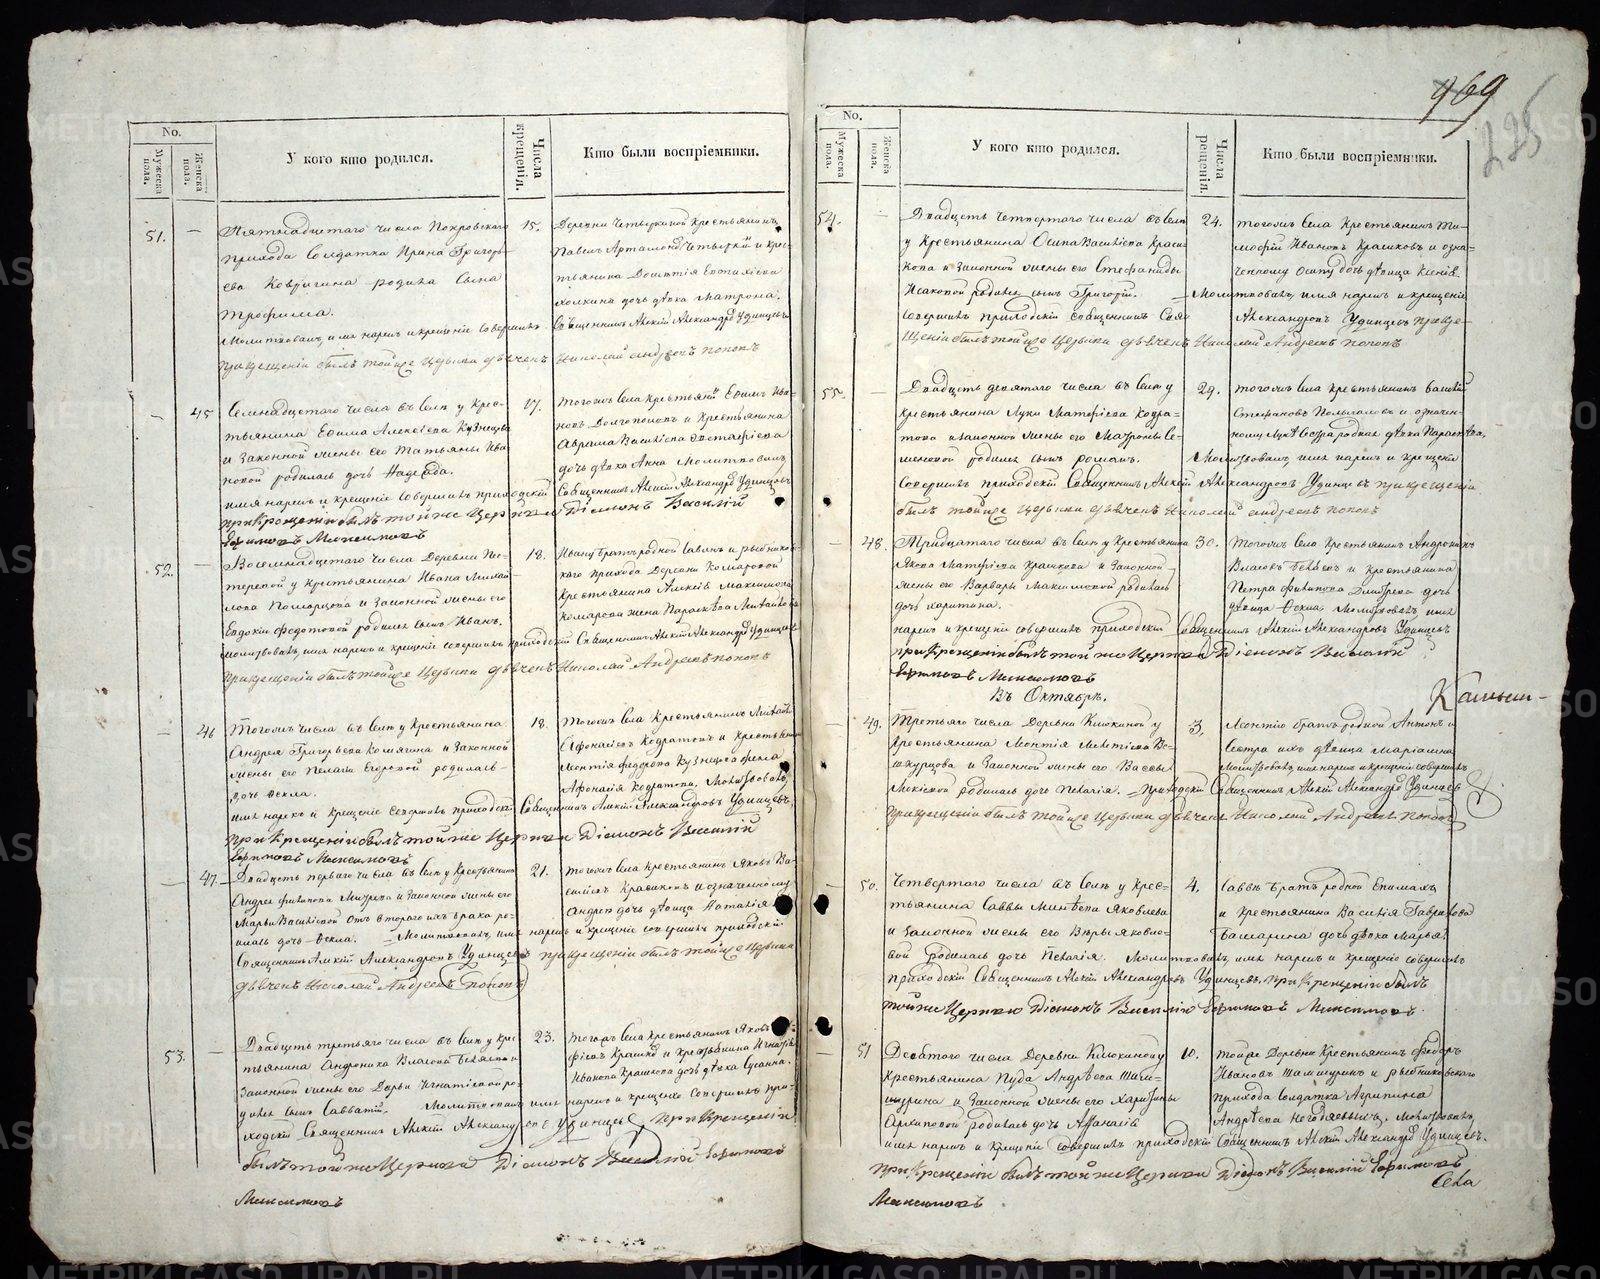 No.
Мужеска пола.
Женска пола.
У кого кто родился.
Числа крещенія.
Кто были воспріемники.
51.
—
Пятнадцатаго числа Покровскаго
прихода Солдатка Ирина Григорь-
ева родила сына
Трофима.
15.
Деревни крестьянинъ
Павелъ и крес-
тьянина
дочь дѣвка Матрона.
Молитвовалъ, имя нарекъ и крещеніе совершилъ Священникъ Алексій Александровъ Удинцевъ
при крещеніи былъ тойже Церкви дьячекъ Николай Андреевъ Поповъ
—
45
Семнадцатаго числа въ селѣ у крес-
тьянина Ефима Алексѣева Кузнецова
и законной жены его Татьяны Ива-
новой родилась дочь Надежда.
17.
Тогожъ села крестьянинъ Ефимъ Ива-
новъ и крестьянина
Аврама Васильева
дочь дѣвка Анна Молитвовалъ,
имя нарекъ и крещеніе совершилъ приходскій Священникъ Алексій Александровъ Удинцевъ
при крещеніи былъ той же Церкви Діаконъ Василій
Ефимовъ Максимовъ
52.
—
Восемнадцатаго числа Деревни
у крестьянина Ивана Михай-
лова и законной жены его
Евдокіи Федотовой родился сынъ Иванъ.
18.
Ивану братъ родной и рыбников-
скаго прихода Деревни Комаровой
крестьянина Алексѣя Максимова
Комарова жена Параскѣва Михайлова
молитвовалъ, имя нарекъ и крещеніе совершилъ приходскій Священникъ Алексій Александровъ Удинцевъ
при крещеніи былъ тойже Церкви дьячекъ Николай Андреевъ Поповъ
—
46
Тогожъ числа въ селѣ у крестьянина
Андрея Григорьева и законной
жены его Пелагіи Егоровой родилась
дочь Ѳекла.
18.
Тогожъ села крестьянинъ
и крестьянина
Леонтія Федорова Кузнецова
Молитвовалъ,
имя нарекъ и крещеніе совершилъ приходскій Священникъ Алексій Александровъ Удинцевъ,
при крещеніи былъ той же Церкви Діаконъ Василій
Ефимовъ Максимовъ
—
47.
Двадцать перваго числа въ селѣ у крестьянина
Андрея Филипова и законной жены его
Марьи Васильевой отъ втораго ихъ брака ро-
дилась дочь Ѳекла.
21.
Тогожъ села крестьянинъ Яковъ Ва-
сильевъ и означенному
Андрею дочь дѣвица Наталія
Молитвовалъ, имя нарекъ и крещеніе совершилъ приходскій
Священникъ Алексій Александровъ Удинцевъ при крещеніи былъ тойже Церкви
дьячекъ Николай Андреевъ Поповъ
53.
Двадцать третьяго числа въ селѣ у крес-
тьянина Андроника Власова и
законной жены его Дарьи Игнатіевой ро-
дился сынъ Савватій.
23.
Тогожъ села крестьянинъ Яковъ
Крашковъ и крестьянина Игнатія
Иванова Крашкова дочь дѣвка Сусанна.
Молитвовалъ имя нарекъ и крещеніе совершилъ при-
ходскій Священникъ Алексій Александровъ Удинцевъ, при крещеніи
былъ той же Церкви Діаконъ Василій Ефимовъ
Максимовъ
969
225
No.
Мужеска пола.
Женска пола.
У кого кто родился.
Числа рещенія.
Кто были воспріемники.
54.
—
Двадцать четвертаго числа въ селѣ
у крестьянина Осипа Васильева Краш-
кова и законной жены его Стефаниды
Исаковой родился сынъ Григорій.
24.
Тогожъ села крестьянинъ Ти-
мофей Ивановъ Крашковъ и озна-
ченному Осипу дочь дѣвица Ксенія.
Молитвовалъ, имя нарекъ и крещеніе
совершилъ приходскій Священникъ Алексій Александровъ Удинцевъ при кре-
щеніи былъ тойже Церкви дьячекъ Николай Андреевъ Поповъ
55.
—
Двадцать девятаго числа въ селѣ у
крестьянина Луки Матфѣева Кодра-
това и законной жены его Матроны Се-
меновой родился сынъ Романъ.
29.
Тогожъ села крестьянинъ Василій
Стефановъ и означен-
ному Лукѣ сестра родная дѣвка Параскѣва,
Молитвовалъ, имя нарекъ и крещеніе
совершилъ приходскій Священникъ Алексій Александровъ Удинцевъ при крещеніи
былъ тойже Церкви дьячекъ Николай Андреевъ Поповъ
—
48.
Тридцатаго числа въ селѣ у крестьянина
Якова Матфѣева Крашкова и законной
жены его Варвары Максимовой родилась
дочь Харитина.
30.
Тогожъ села крестьянинъ Андроникъ
Власовъ и крестьянина
Петра Филипова дочь
дѣвица Молитвовалъ, имя
нарекъ и крещеніе совершилъ приходскій Священникъ Алексій Александровъ Удинцевъ
при крещеніи былъ той же Церкви Діаконъ Василій
Ефимовъ Максимовъ
Въ Октябрѣ.
Камыш-
—
49.
Третьяго числа Деревни Клюкиной у
крестьянина Леонтія
и законной жены его Вассы
родилась дочь Пелагія.
3.
Леонтію братъ родной Антонъ и
сестра ихъ дѣвица Маріамна
Молитвовалъ, имя нарекъ и крещеніе совершилъ
приходскій Священникъ Алексій Александровъ Удинцевъ
при крещеніи былъ тойже Церкви дьячекъ Николай Андреевъ Поповъ
—
50.
Четвертаго числа въ селѣ у крес-
тьянина Саввы Яковлева
и законной жены его Вѣры Яковле-
вой родилась дочь Пелагія.
4.
Саввѣ братъ родной Епимахъ
и крестьянина Василія Гаврилова
Башарина дочь дѣвка Марья.
Молитвовалъ, имя нарекъ и крещеніе совершилъ
приходскій Священникъ Алексій Александровъ Удинцевъ, при крещеніи былъ
той же Церкви Діаконъ Василій Ефимовъ Максимовъ.
—
51
Девятаго числа Деревни Клюкиной у
крестьянина Пуда Андрѣева Шам-
шурина и законной жены его Харитины
Архиповой родилась дочь Афанасія
10.
Тойже Деревни крестьянинъ Федоръ
Ивановъ Шамшуринъ и рыбниковскаго
прихода солдатка Агрипина
Андрѣева Молитвовалъ,
имя нарекъ и крещеніе совершилъ приходскій Священникъ Алексій Александровъ Удинцевъ.
при крещеніи былъ той же Церкви Діаконъ Василій Ефимовъ
Максимовъ
Села